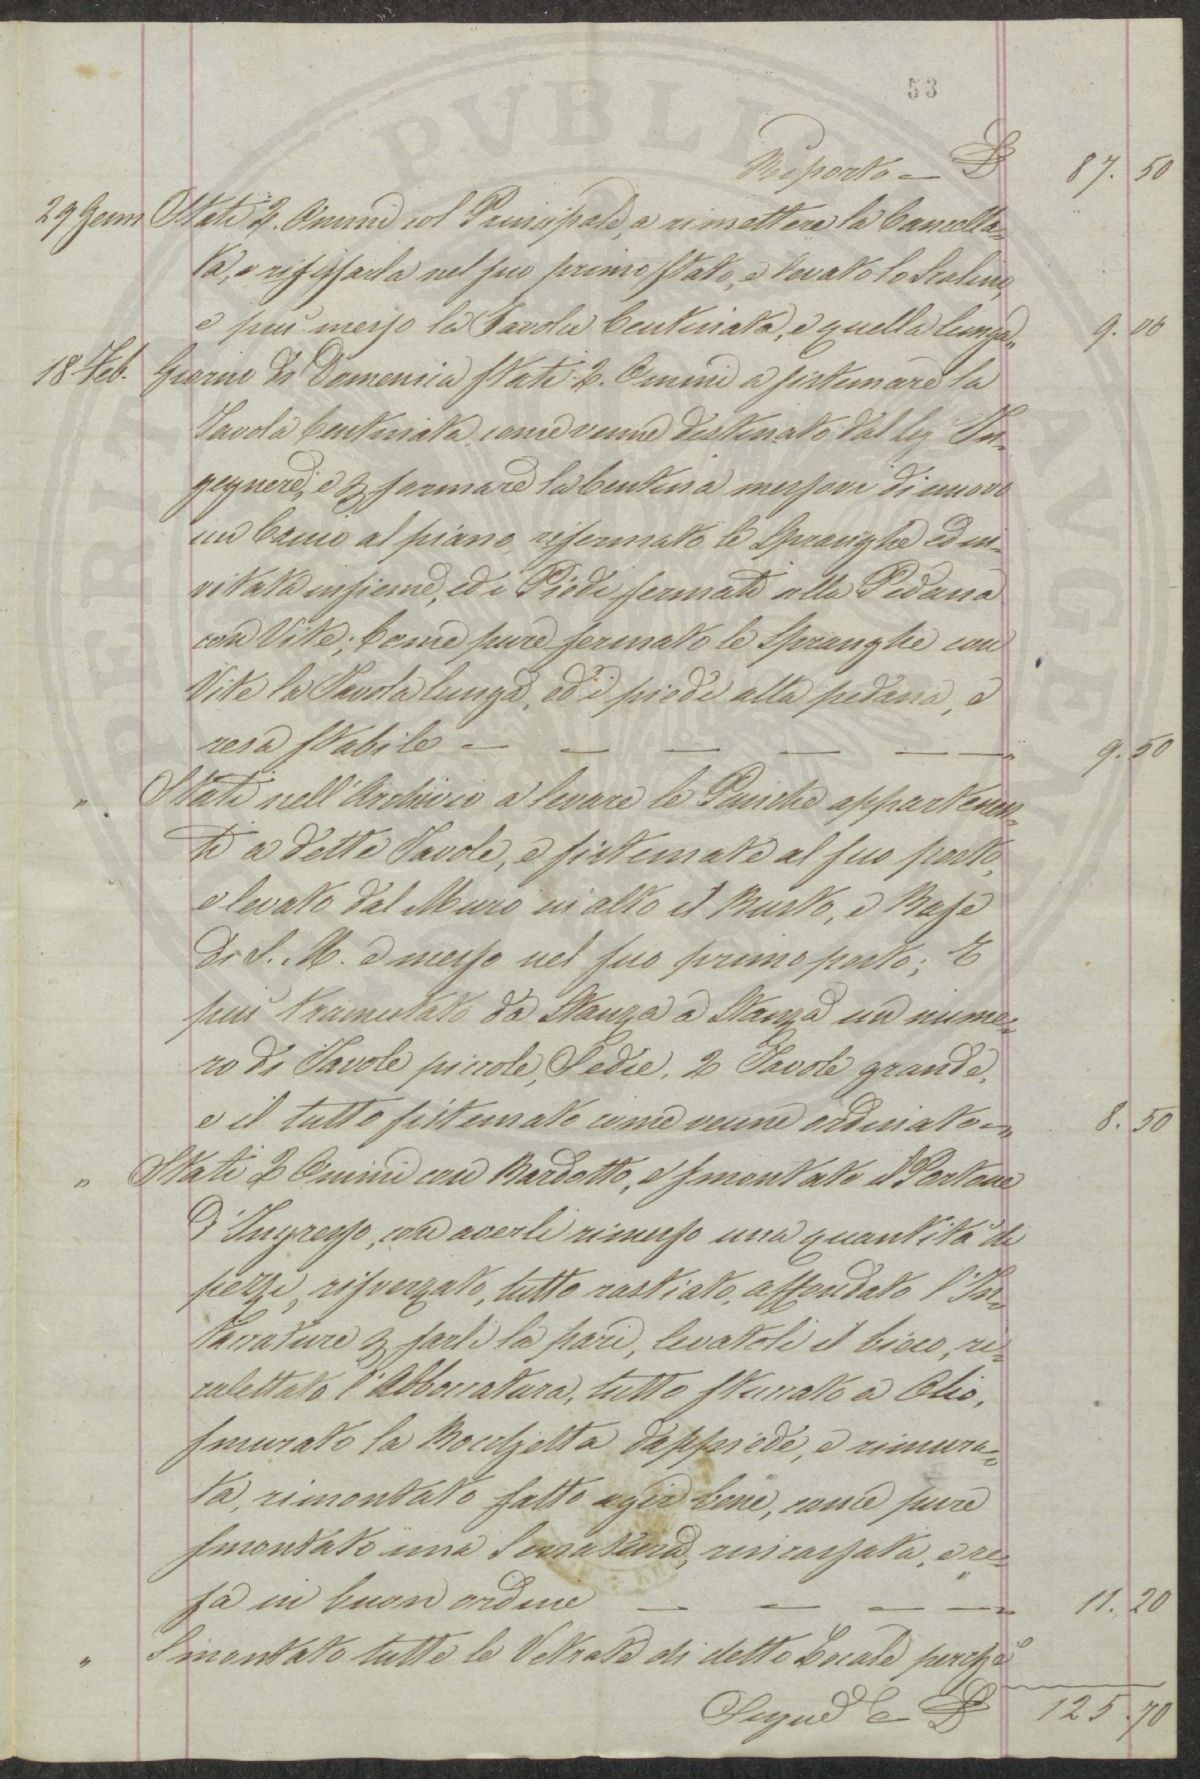 53
Riporto — L 87. 50
29 Genn. Stati 2. Omini col Principale, a rimettere la Cancella=
ta, e rifissarla nel suo primo stato, e levato lo Scalino,
e più messo la Tavola Centinata, e quella lunga 9. 00
18 Feb. Giorno di Domenica stati 2. Omini a sistemare la
Tavola Centinata come venne destinato dal Sig In=
gegnere, e p formare la Centina messovi di nuovo
un al piano, rifermato le Spranghe ed in=
vitata insieme, ed i Piedi fermati alla Pedana
con Vite; Come pure fermato le Spranghe con
Vite la Tavola lunga, ed i piedi alla pedana, e
resa stabile — — — — — — 9. 50
" Stati nell'Archivio a levare le Panche appartenen=
ti a dette Tavole, e sistemate al suo posto,
e levato dal Muro in alto il Busto, e Base
di S. M. e messo nel suo primo posto; E
più tramutato da Stanza a Stanza un nume=
ro di Tavole piccole, Sedie, 2 Tavole grande,
e il tutto sistemato come venne ordinato — 8. 50
" Stati 2 Omini con Bardotto, e smontato il Portone
d'Ingresso, con averli rimesso una quantità di
pezzi, risverzato, tutto rastiato, affondato l'In=
tarsature p farli la pari, levatoli il bieco, ri=
calettato l'Abboccatura, tutto stuccato a Olio,
smurato la Bocchetta dappiede, e rimura=
ta, rimontato fatto agir bene, come pure
smontato una Serratura, rincassata, e re=
sa in buon ordine — — — — 11. 20
" Smontato tutte le Vetrate di detto Locale perchè
Segue L 125. 70